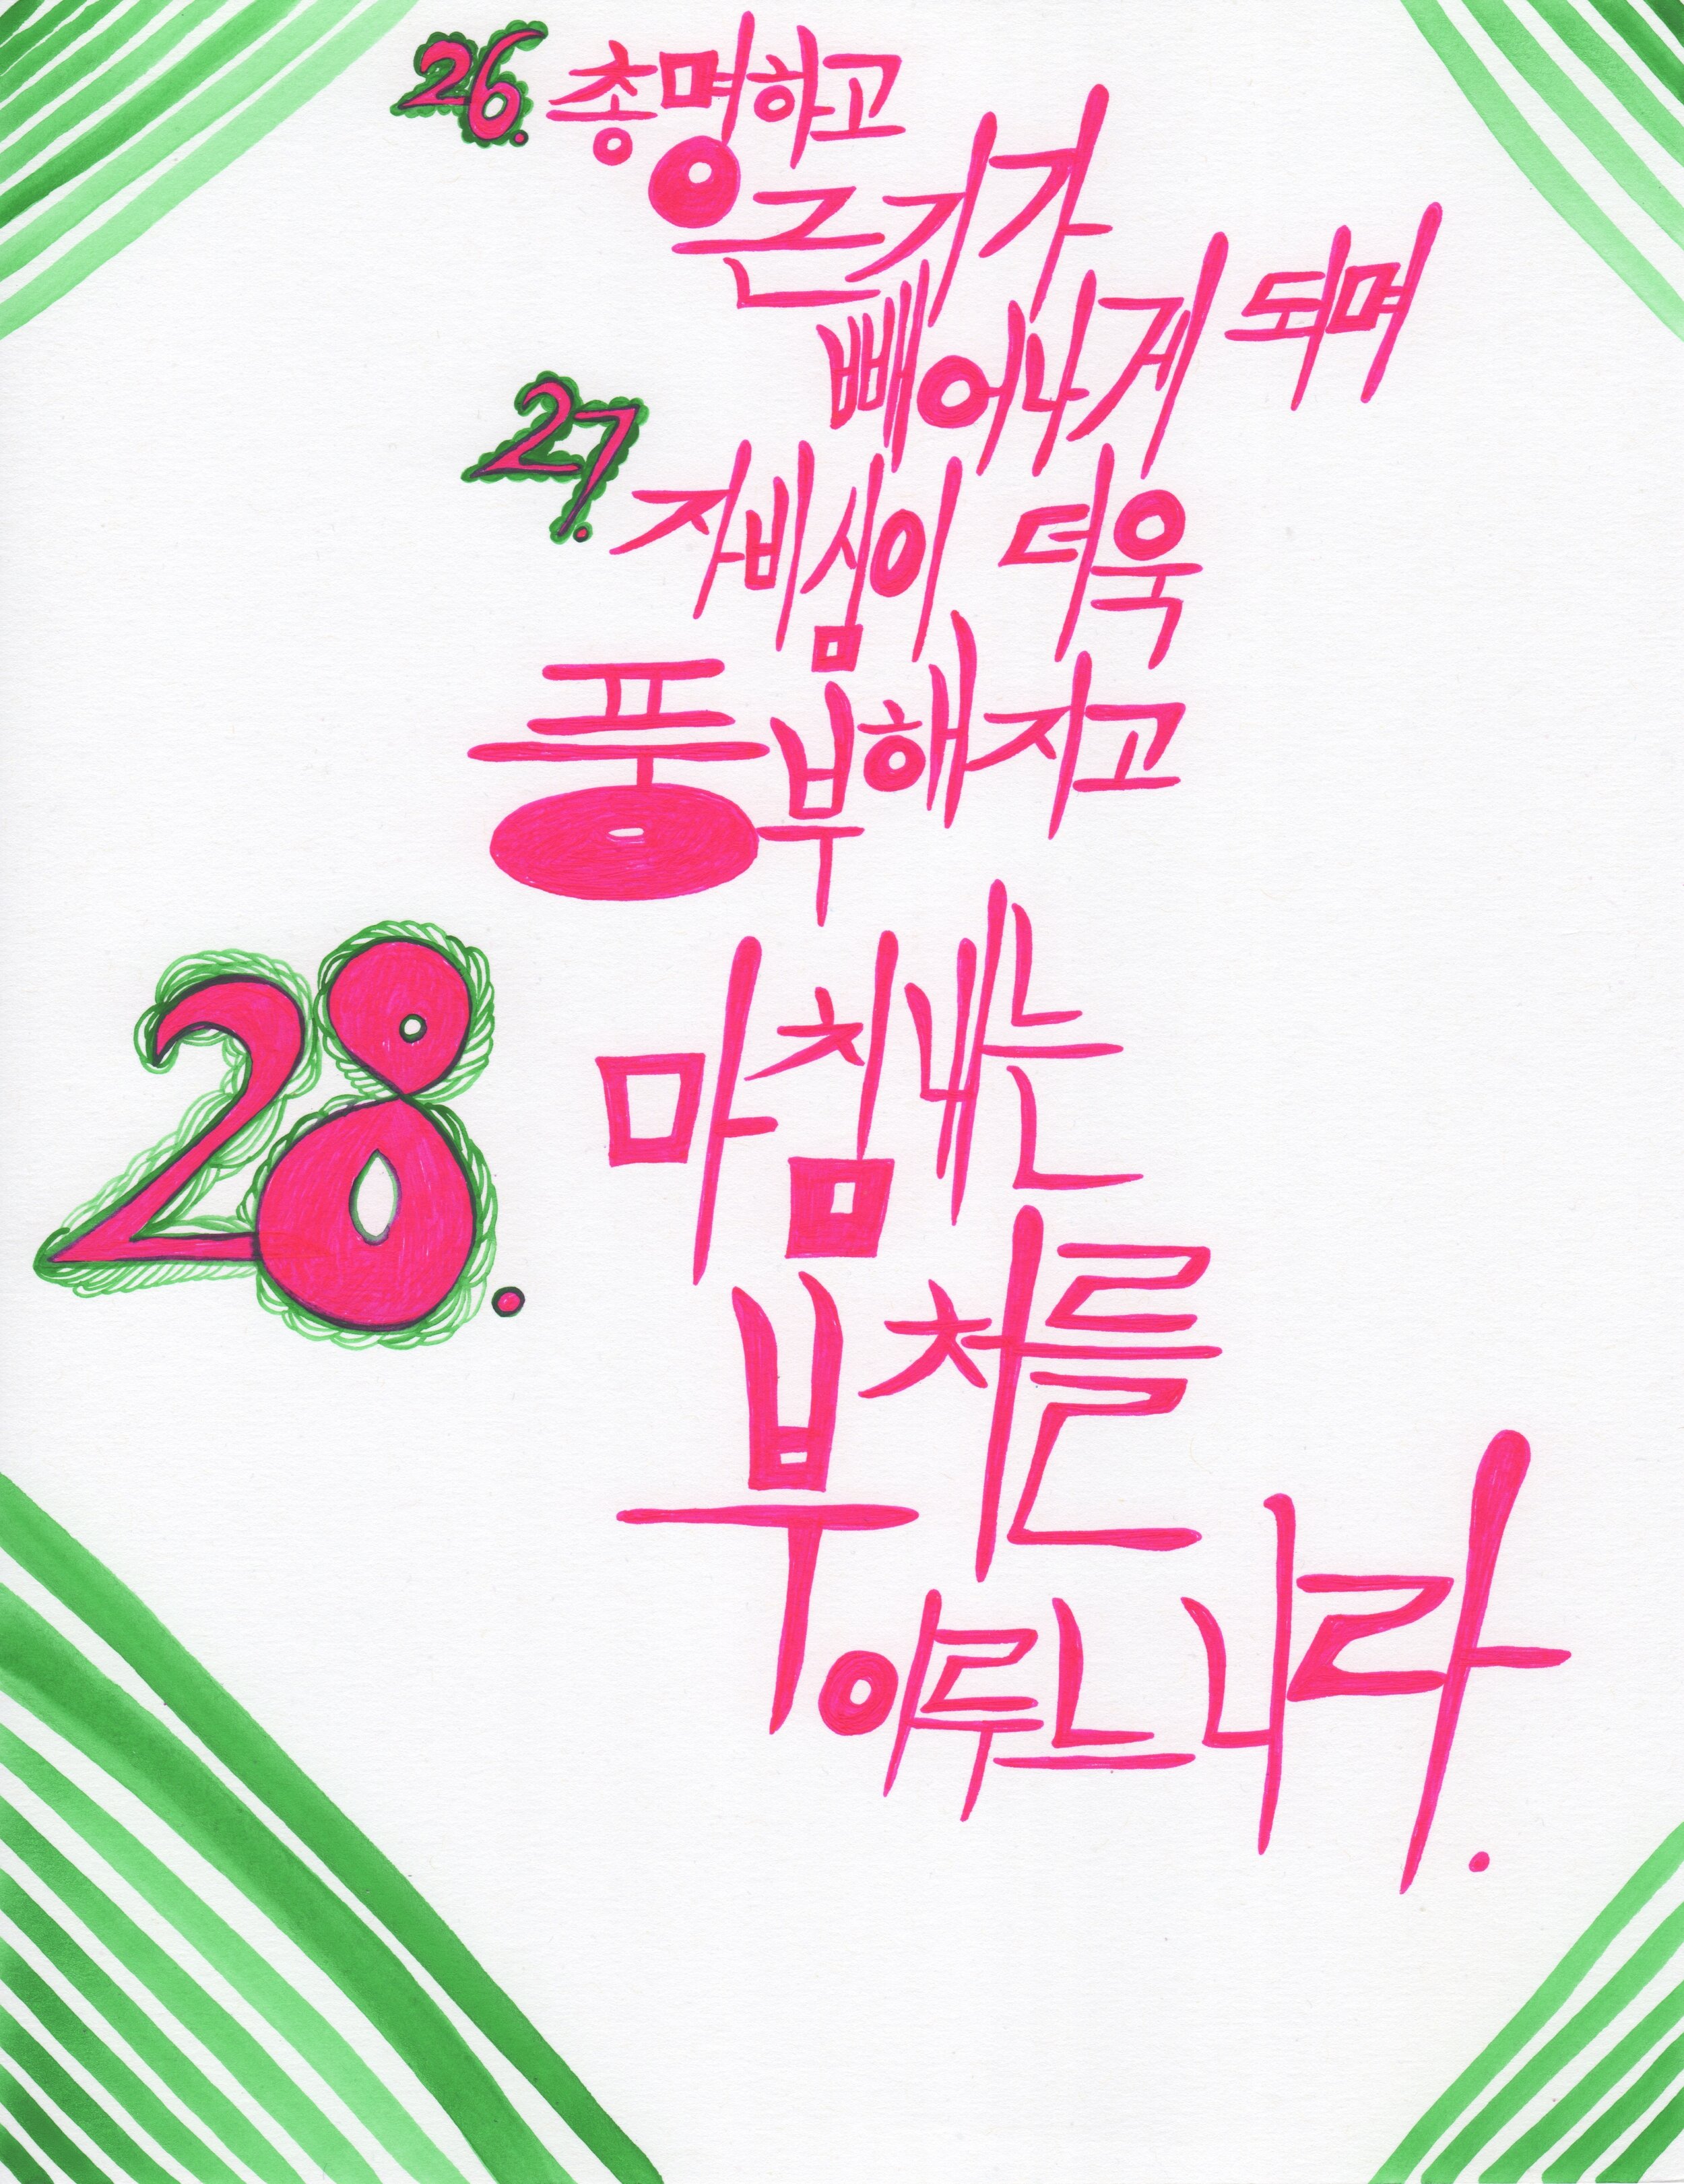 26. 총명하고
근기가
빼어나게 되며
27. 자비심이 더욱
풍부해지고
28. 마침내는
부처를
이루느니라.